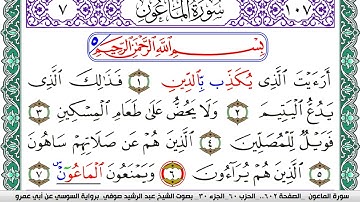 ٧ سُورَةُ المَاعُونِ ١٠٧
بِسْمِ اللَّهِ الرَّحْمَٰنِ الرَّحِيمِ ٥
أَرَءَيْتَ الَّذِى يُكَذِّب بِّالدِّينِ ١ فَذَٰلِكَ الَّذِى
يَدُعُّ الْيَتِيمَ ٢ وَلَا يَحُضُّ عَلَىٰ طَعَامِ الْمِسْكِينِ ٣
فَوَيْلٌ لِّلْمُصَلِّينَ ٤ الَّذِينَ هُمْ عَن صَلَاتِهِمْ سَاهُونَ
٥ الَّذِينَ هُمْ يُرَآءُونَ ٦ وَيَمْنَعُونَ الْمَاعُونَ ٧
سورة الماعون _الصفحة ٦٠٢.. الحزب ٦٠_ الجزء ٣٠_ بصوت الشيخ عبد الرشيد صوفي _برواية السوسي عن أبي عمرو